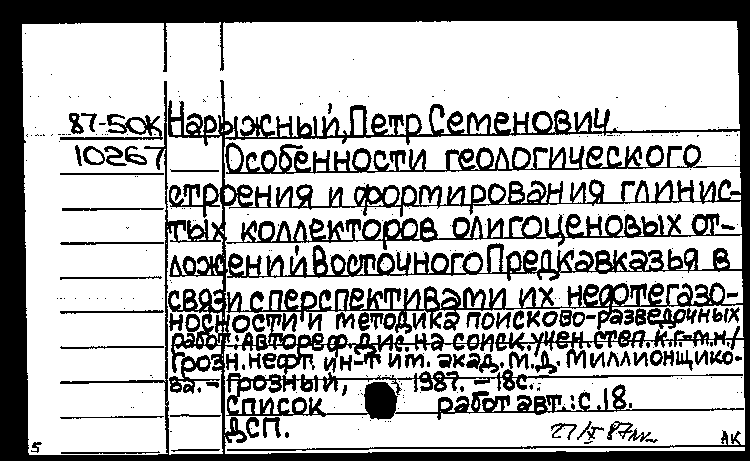 87-50К Нарыжный, Петр Семенович.
10267 Особенности геологического
строения и формирования глинис-
тых коллекторов олигоценовых от-
ложений Восточного Предкавказья в
связи с перспективами их нефтегазо-
носности и методика поисково-разведочных
работ: Автореф. дис. на соиск. учен. степ. к.г.-м.н./
Грозн. нефт. ин-т им. акад. М.Д. Миллионщико-
ва. - Грозный, 1987. - 18с.
Список работ авт.: с.18.
ДСП.
5 АК